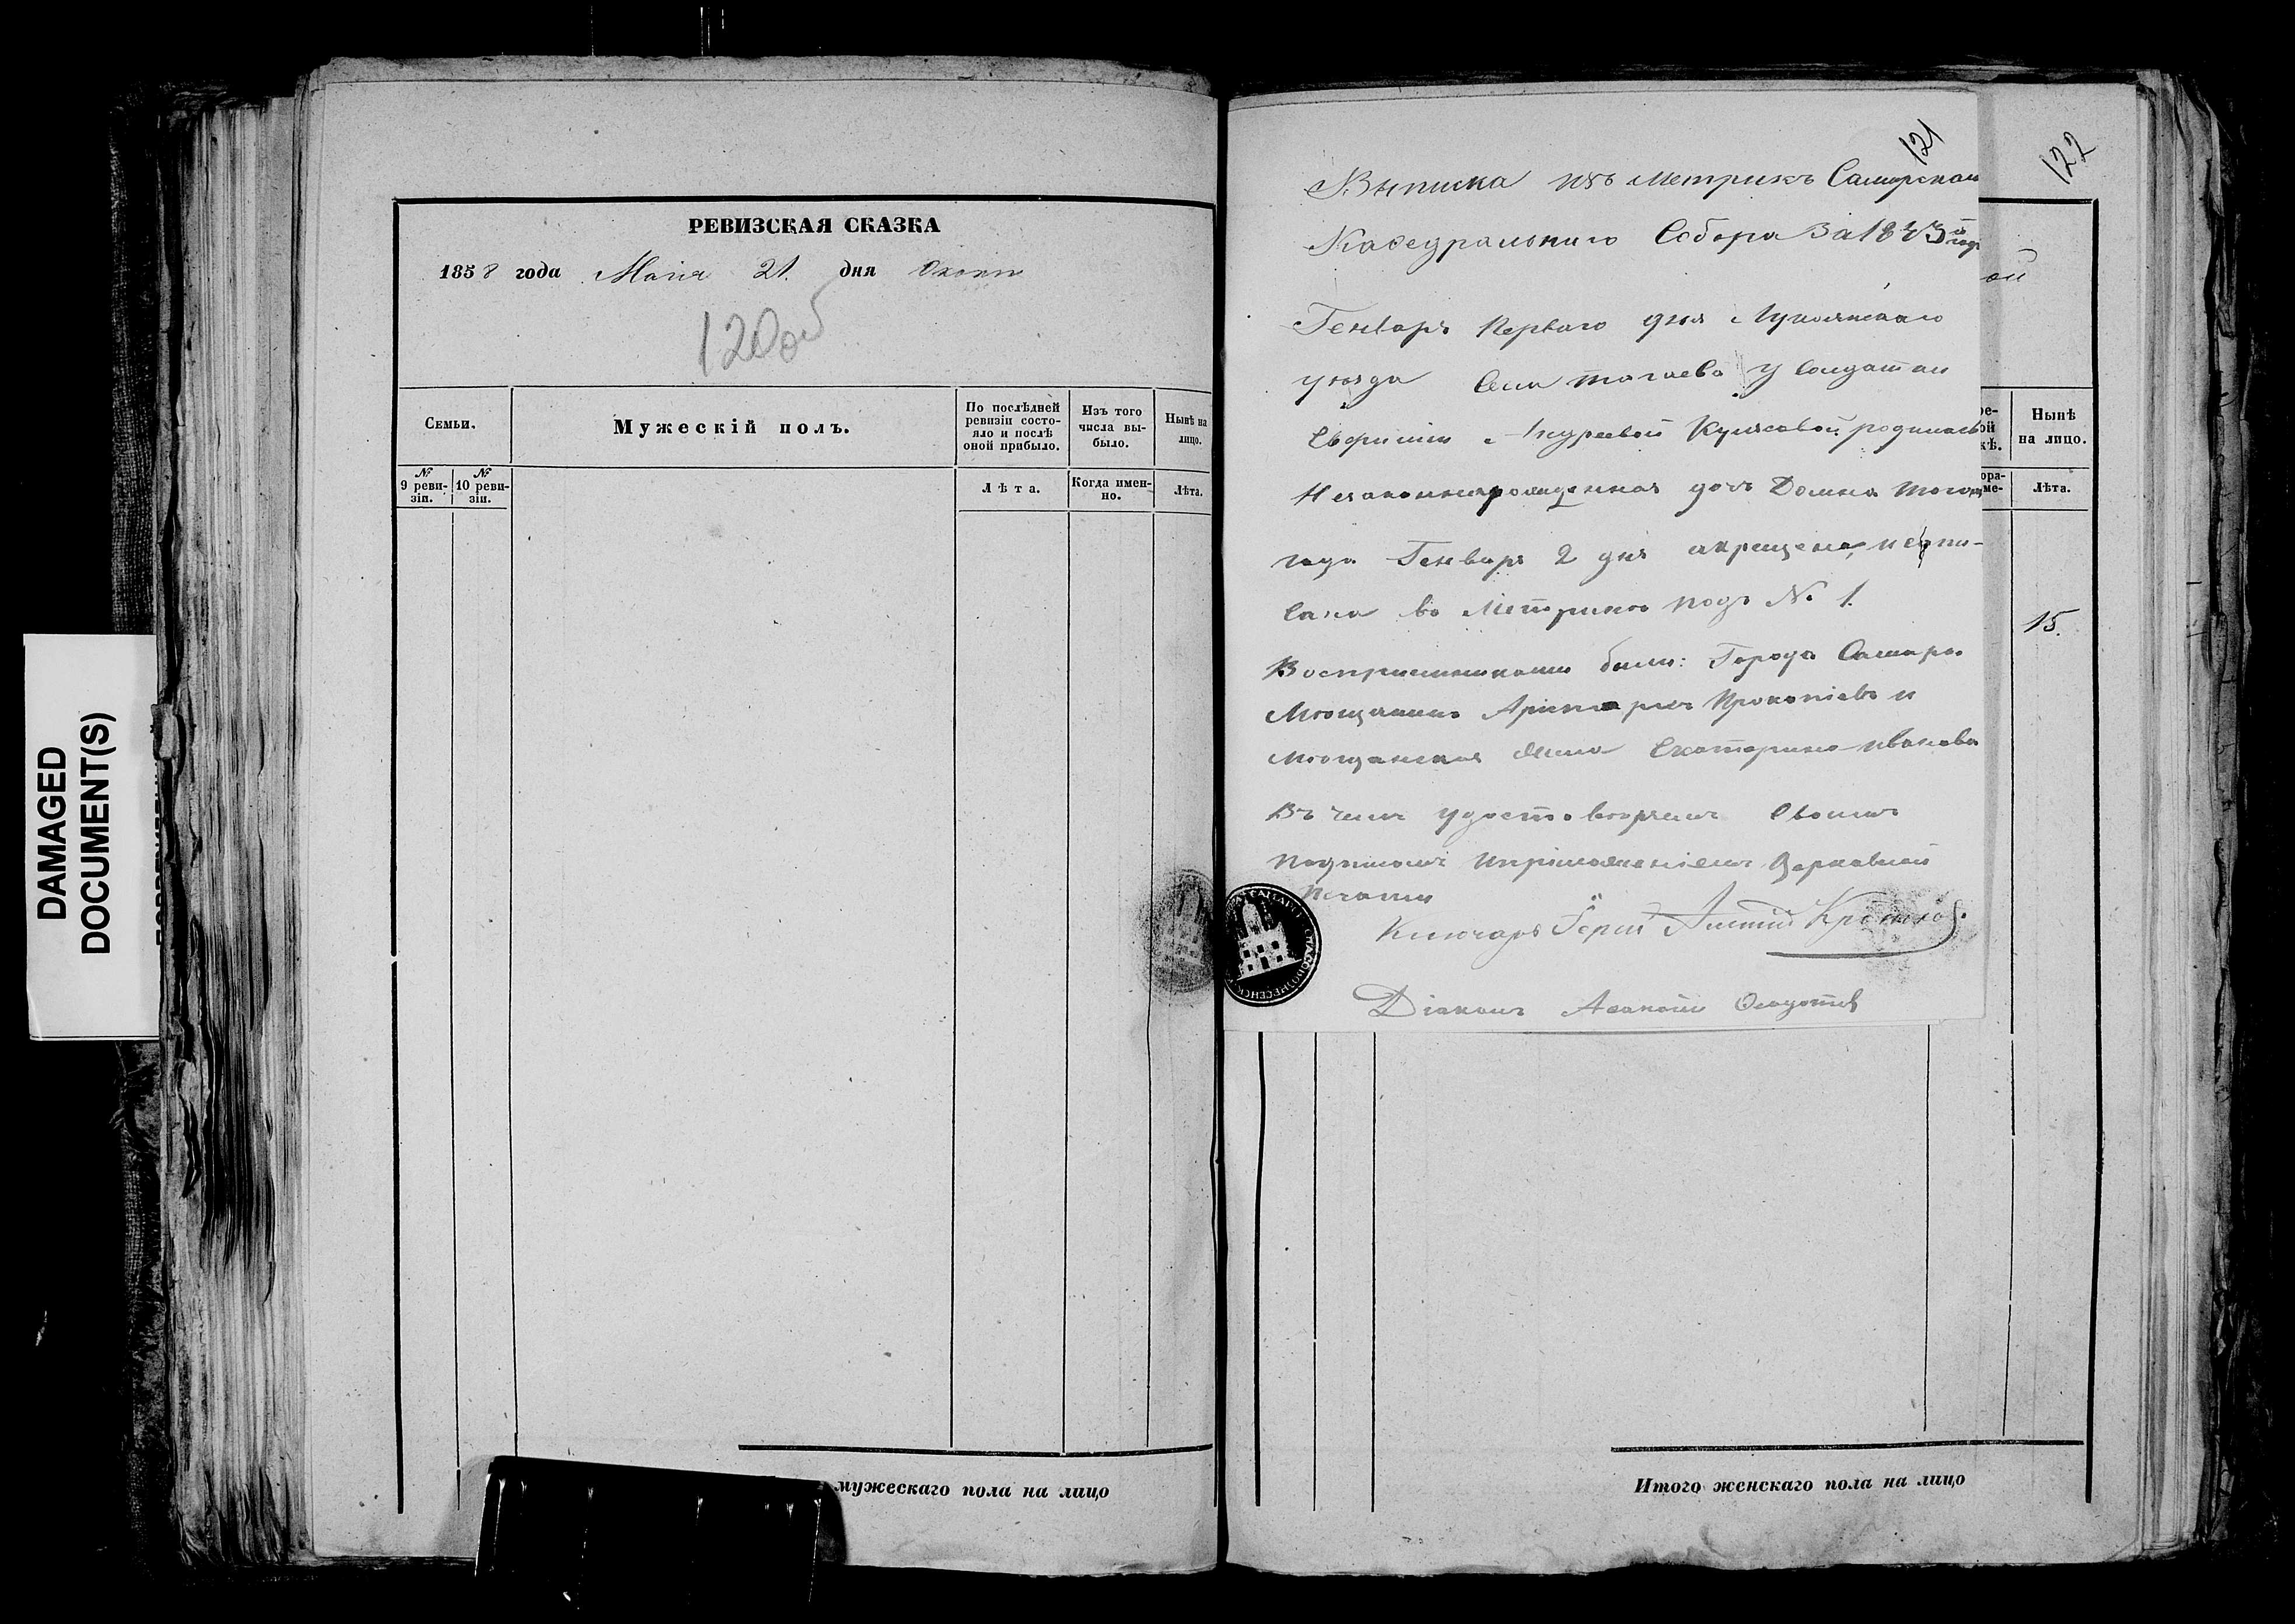 DAMAGED
DOCUMENT(S)
РЕВИЗСКАЯ СКАЗКА
1858 года Маия 21. дня
120об
Семьи.
Мужескій полъ.
По послѣдней
ревизіи состо-
яло и послѣ
оной прибыло.
Изъ того
числа вы-
было.
Нынѣ на
лицо.
№
9 реви-
зіи.
№
10 реви-
зіи.
Лѣта.
Когда имен-
но.
Лѣта.
мужескаго пола на лицо
121
122
Выписка изъ Метрикъ Самарскаго
Каѳедральнаго Собора За 1843й годъ
ой
Генваря Перваго дня Лукоянскаго
уѣзда Села у Солдатки
родилась
Незаконнорожденная дочь Домна того
года Генваря 2 дня окрещена,
сана въ Метрикѣ подъ № 1.
Воспріемниками были: Города Самары
Мѣщанинъ Прокопіевъ и
мѣщанская Екатерина Иванова
Въ чемъ удостовѣряемъ Своимъ
подписомъ и приложеніемъ Церковной
Печати
Ключарь Іерей
Діаконъ
Нынѣ
на лицо.
Лѣта.
15.
Итого женскаго пола на лицо